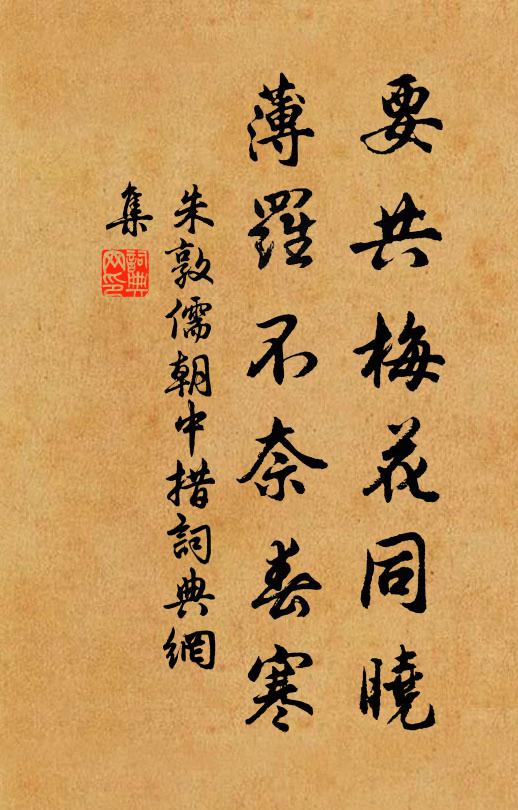 要共梅花同曉
薄羅不奈春寒
朱敦儒朝中措詞典網
集
詞典網印